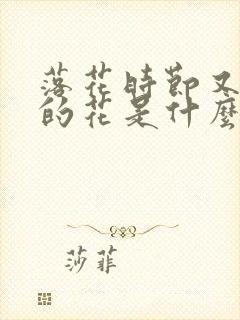 落花時節又
的花是什麼
莎菲